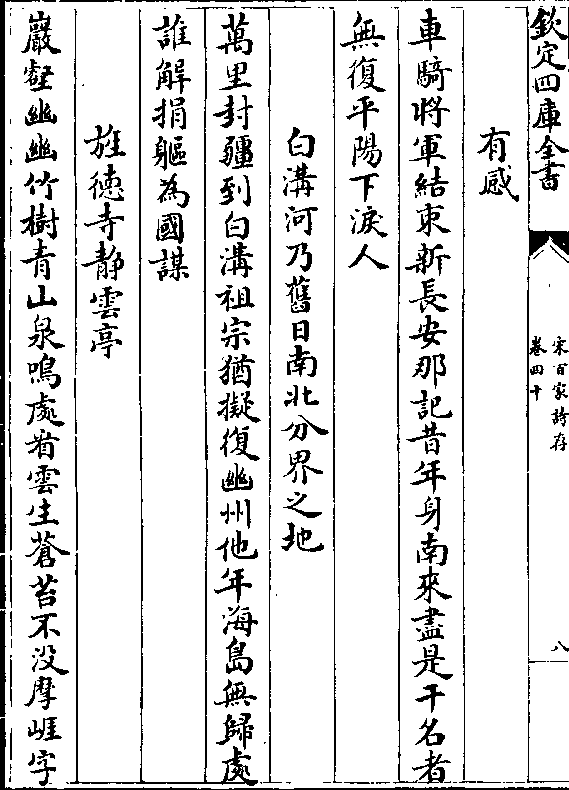 欽定四庫全書
宋百家詩存
卷四十
八
有感
車騎將軍結束新長安那記昔年身南來盡是干名者
無復平陽下淚人
白溝河乃舊日南北分界之地
萬里封疆到白溝祖宗猶擬復幽州他年海島無歸處
誰解捐軀為國謀
旌德寺靜雲亭
巖壑幽幽竹樹青山泉鳴處看雲生蒼苔不没摩崕字